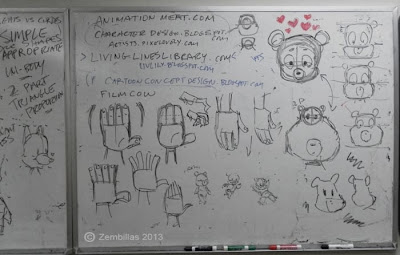 SIMPLE
APPROPRIATE
UNI-BODY
2 PART
TRIANGLE
ANIMATIONMEAT.COM
CHARACTER DESIGN.BLOGSPOT.COM
ARTISTS.PIXELOVELY.COM
> LIVING LINES LIBRARY.COM
YES
LIVLILI.BLOGSPOT.COM
CARTOON CONCEPT DESIGN.BLOGSPOT.COM
FILMCOW
© Zembillas 2013